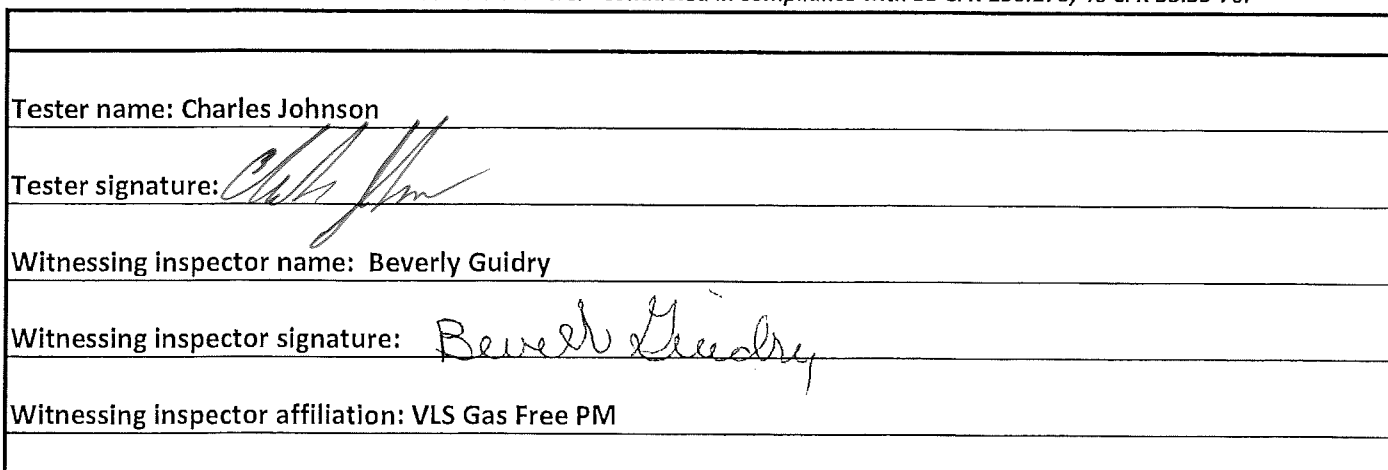 in compliance with
Tester name: Charles Johnson
Tester signature:
Witnessing inspector name: Beverly Guidry
Witnessing inspector signature: Beverly Guidry
Witnessing inspector affiliation: VLS Gas Free PM